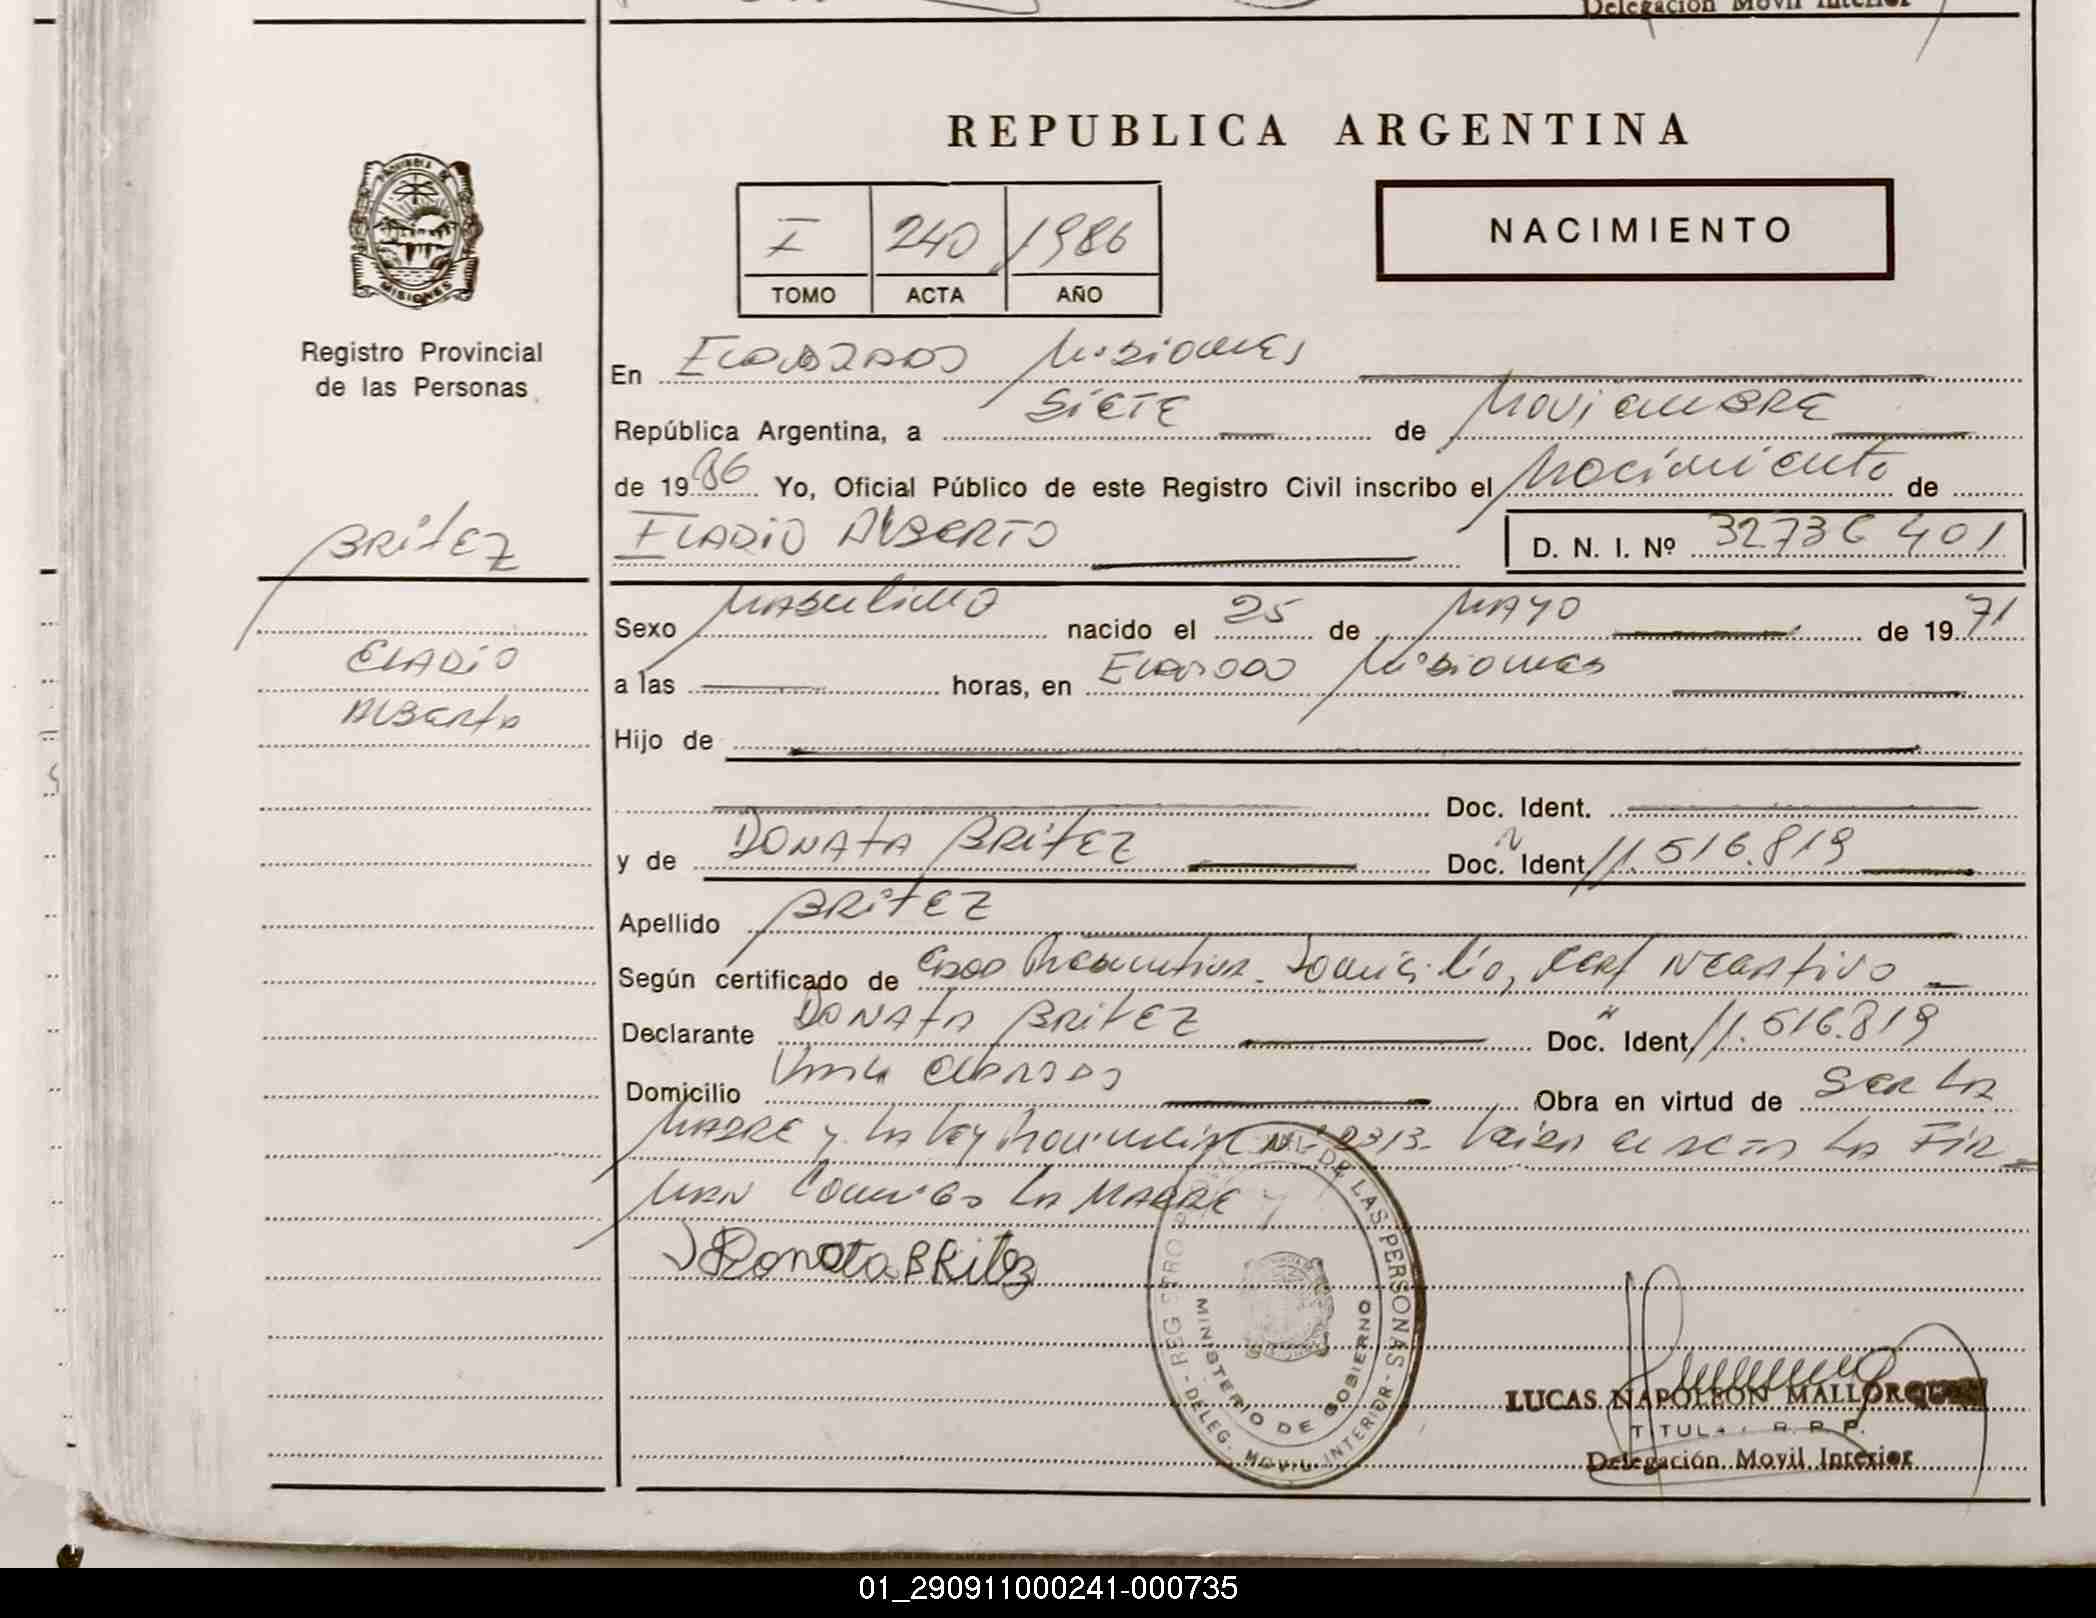 Delegación Movil Interior
REPUBLICA ARGENTINA
I 240 1986
NACIMIENTO
TOMO ACTA AÑO
Registro Provincial
de las Personas
En Eldorado Misiones
República Argentina, a SIETE de Noviembre
de 1986 Yo, Oficial Público de este Registro Civil inscribo el Nacimiento de
BRitEZ
ELADIO ALBERTO D. N. I. Nº 32736401
Sexo Masculino nacido el 25 de MAYO de 1971
ELADIO
a las horas, en Eldorado Misiones
Alberto
Hijo de
Doc. Ident.
y de DONAtA BRitEZ Doc. Ident 11.516.819
Apellido BRitEZ
Según certificado de Edad Presuntiva. Domicilio, Cert NEGAtivo
Declarante DONAtA BRitEZ Doc. Ident. 11.516.819
Domicilio Eldorado Obra en virtud de Ser La
MADRE y La Ley Provincial Nº 2313. Leída el acta La FIR
MAN Conmigo La MADRE
Donata BRitez
REGISTRO PROVINCIAL DE LAS PERSONAS - DELEG. MOVIL INTERIOR -
MINISTERIO DE GOBIERNO
LUCAS NAPOLEON MALLORQUIN
TITULAR R. P. P.
Delegación Movil Interior
01_290911000241-000735